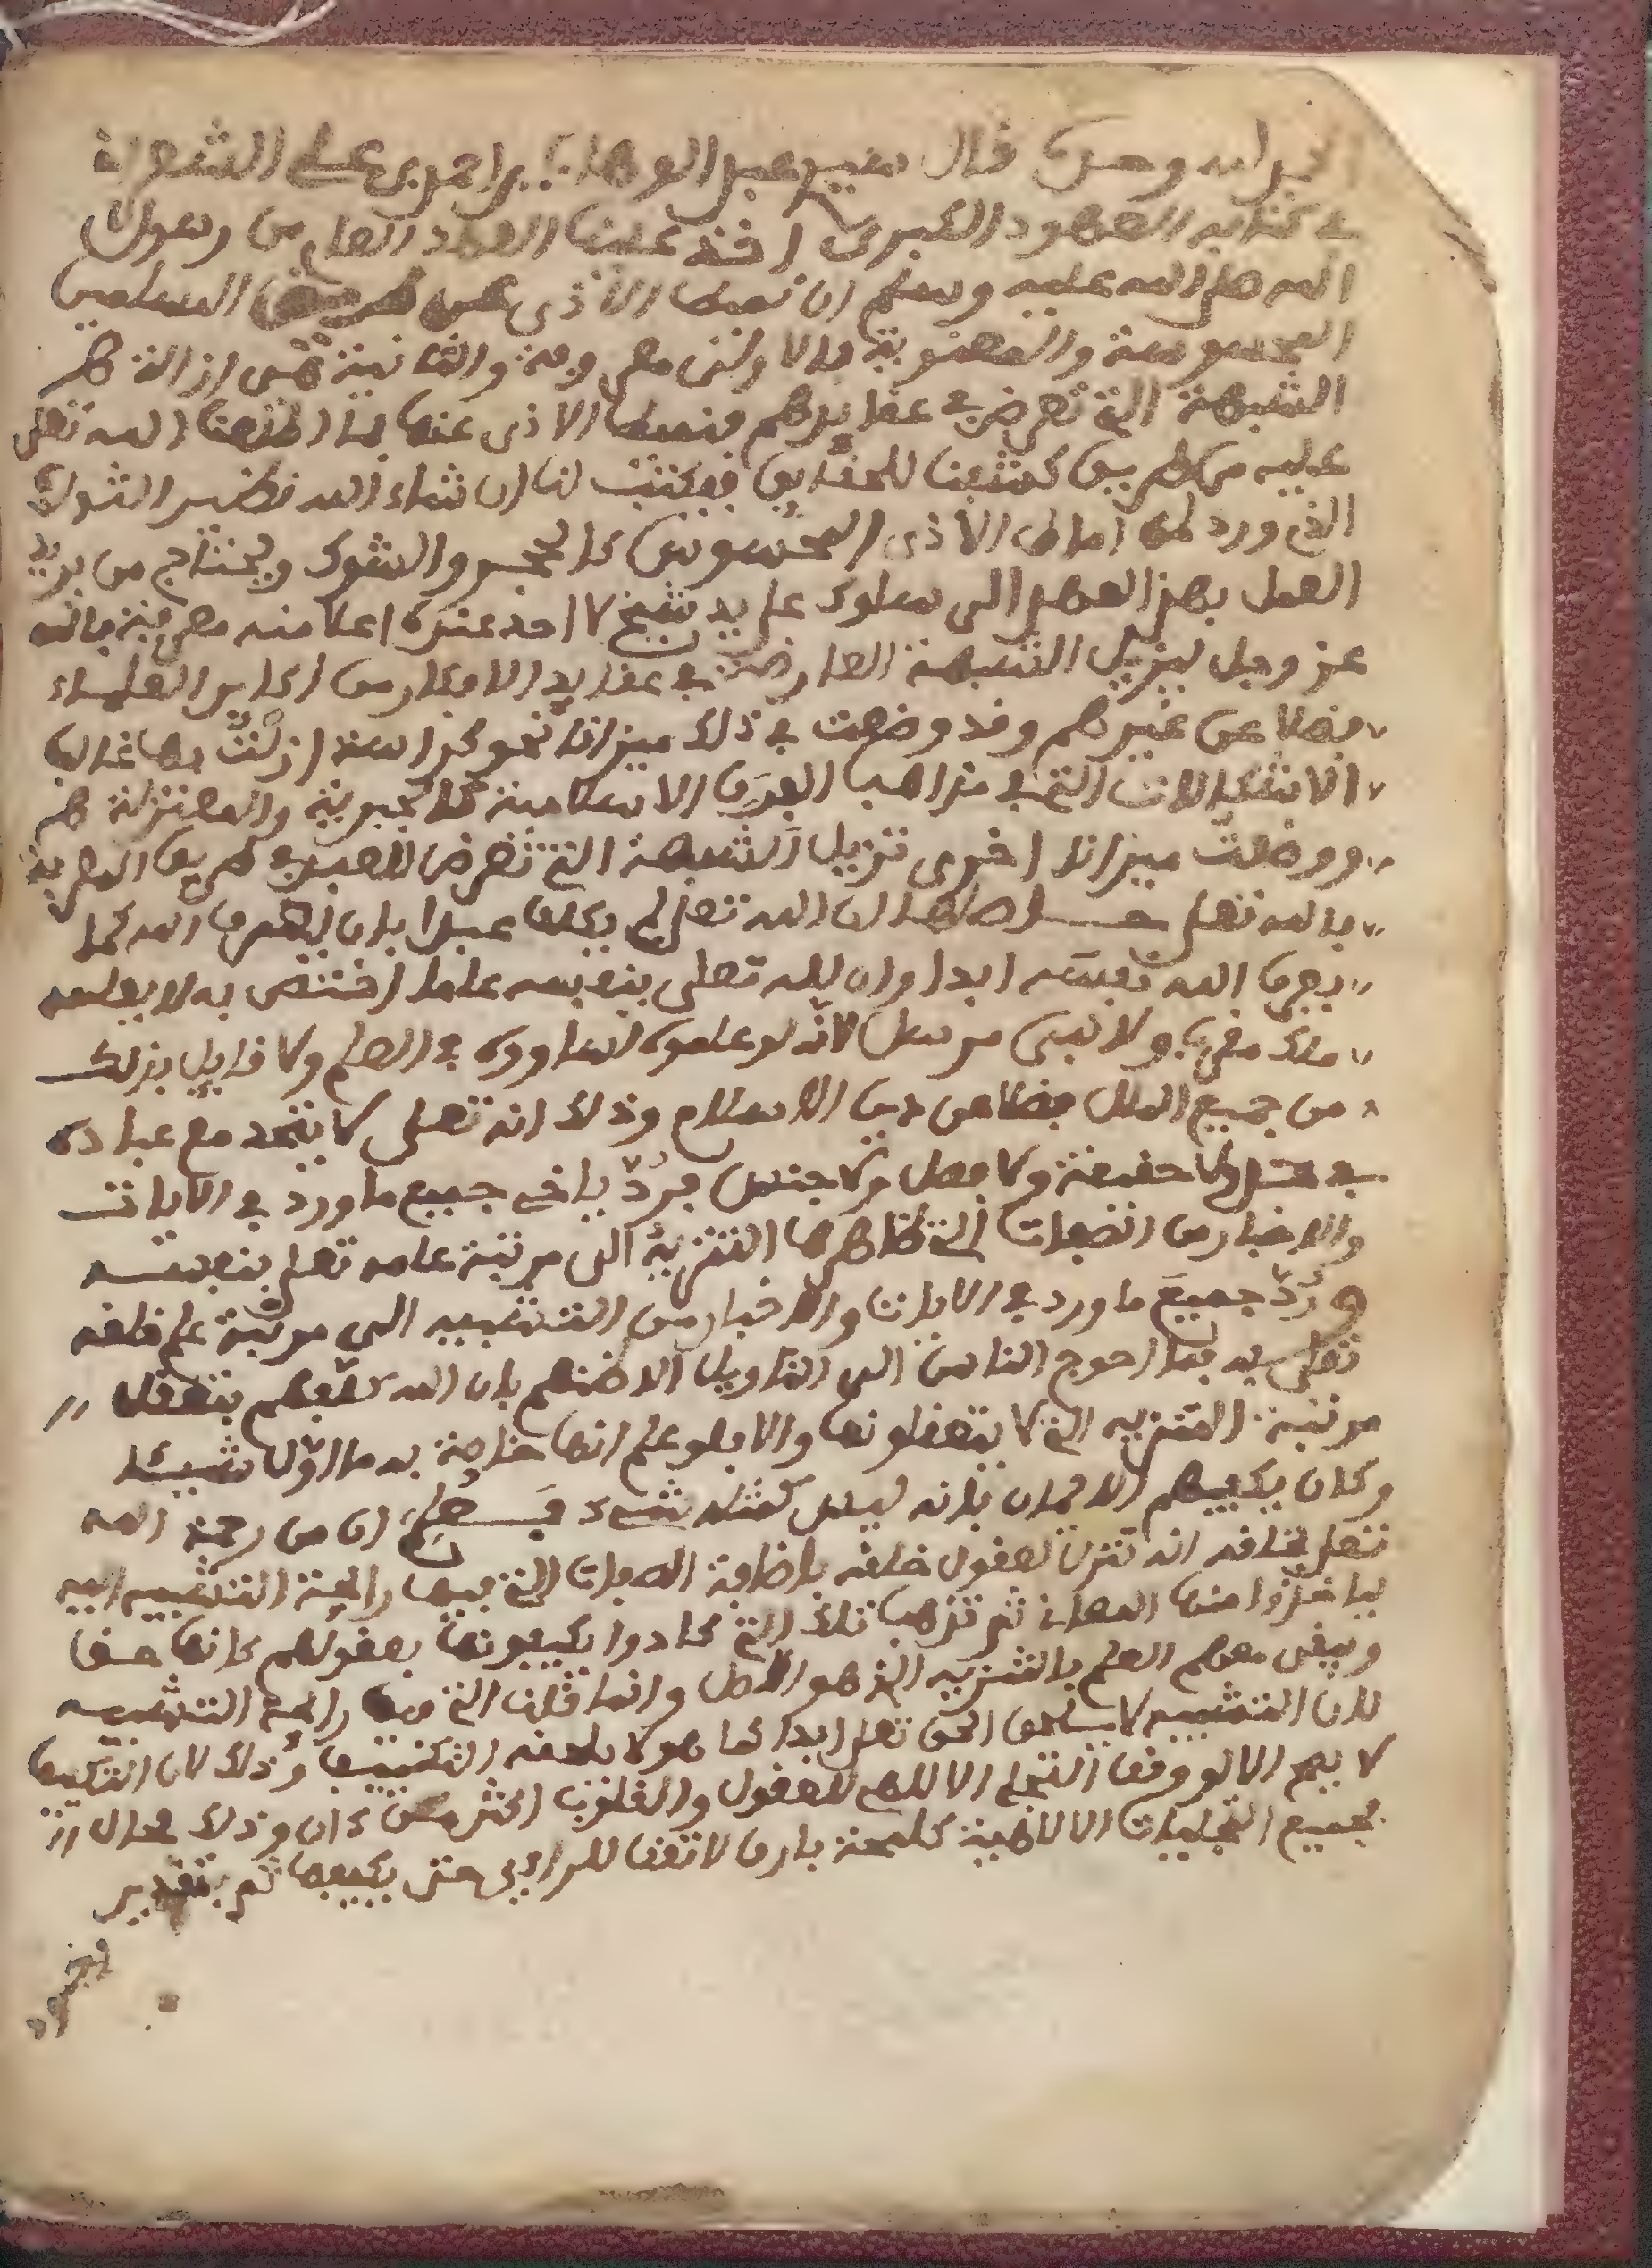 الحمد لله وحده قال سيدي عبد الوهاب بن احمد بن علي الشعراني
في كتابه العهود الكبرى اخذ علينا العهد العام من رسول
الله صلى الله عليه وسلم ان نميط الاذى عن طريق المسلمين
المحسوسة والمعنوية فالاولى معروفة والثانية هي ازالة
الشبهة التي تعرض في عقايدهم فنميط الاذى عنها بما اطلعنا الله تعلى
عليه من طريق كشفنا للحقايق فيكتب لنا ان شاء الله نظير الثواب
الذي ورد لمن اماط الاذى المحسوس كالحجر والشوك ويحتاج من يريد
العمل بهذا العهد الى سلوك على يد شيخ لا احد عنده اعلا منه معرفة بالله
عز وجل ليزيل الشبهة العارضة في عقايد الافكار من اكابر العلماء
فضلا عن غيرهم وقد وضعت في ذلك ميزانا نحو كراسة ازلت بها غالب
الاشكالات التي في مذاهب الفرق الاسلامية كالجبرية والمعتزلة
ووضعت ميزانا اخرى تزيل الشبهة التي تعرض للعبد في طريق المعرفة
بالله تعلى حاصلها ان الله تعلى لم يكلف عبدا بان يعرف الله كما
يعرف الله نفسه ابدا وان لله تعلى بنفسه علما اختص به لا يعلمه
ملك مقرب ولا نبي مرسل لانه لو علموه لساووه في العلم ولا قايل بذلك
من جميع الملل فضلا عن دين الاسلام وذلك انه تعلى لا يتحد مع عباده
في حد ولا حقيقة ولا فصل ولا جنس فرد يا اخي جميع ما ورد في الايات
والاخبار من الصفات التي ظاهرها التنزيه الى مرتبة علمه تعلى بنفسه
ورد جميع ما ورد في الايات والاخبار من التشبيه الى مرتبة علم خلقه
تعلى به فما احوج الناس الى التاويل الا ظنهم بان الله كلفهم بتعقل
مرتبة التنزيه التي لا يتعقلونها والا فلو علم انها خاصة به ما اول شيئا
وكان يكفيهم الايمان بانه ليس كمثله شيء فعلم ان من رحمة الله
تعلى بخلقه انه تنزل لعقول خلقه باضافة الصفات التي فيها رايحة التشبيه اليه
لياخذوا منها المعاني ثم تذهب تلك التي كادوا يكيفونها بعقولهم كانها جفا
ويبقى معهم العلم بالتنزيه الذي هو الاصل وانما قلنا التي فيها رايحة التشبيه
لان التشبيه لا يلحق الحق تعلى ابدا كما هو لا يلحقه التكييف وذلك لان التكييف
لا يصح الا لو وقف التجلي الالاهي للعقول والقلوب اكثر من ءان وذلك محال اذ
جميع التجليات الالاهية كلمحة بارق لا تقف للرايي حتى يكيفها ثم بتقدير